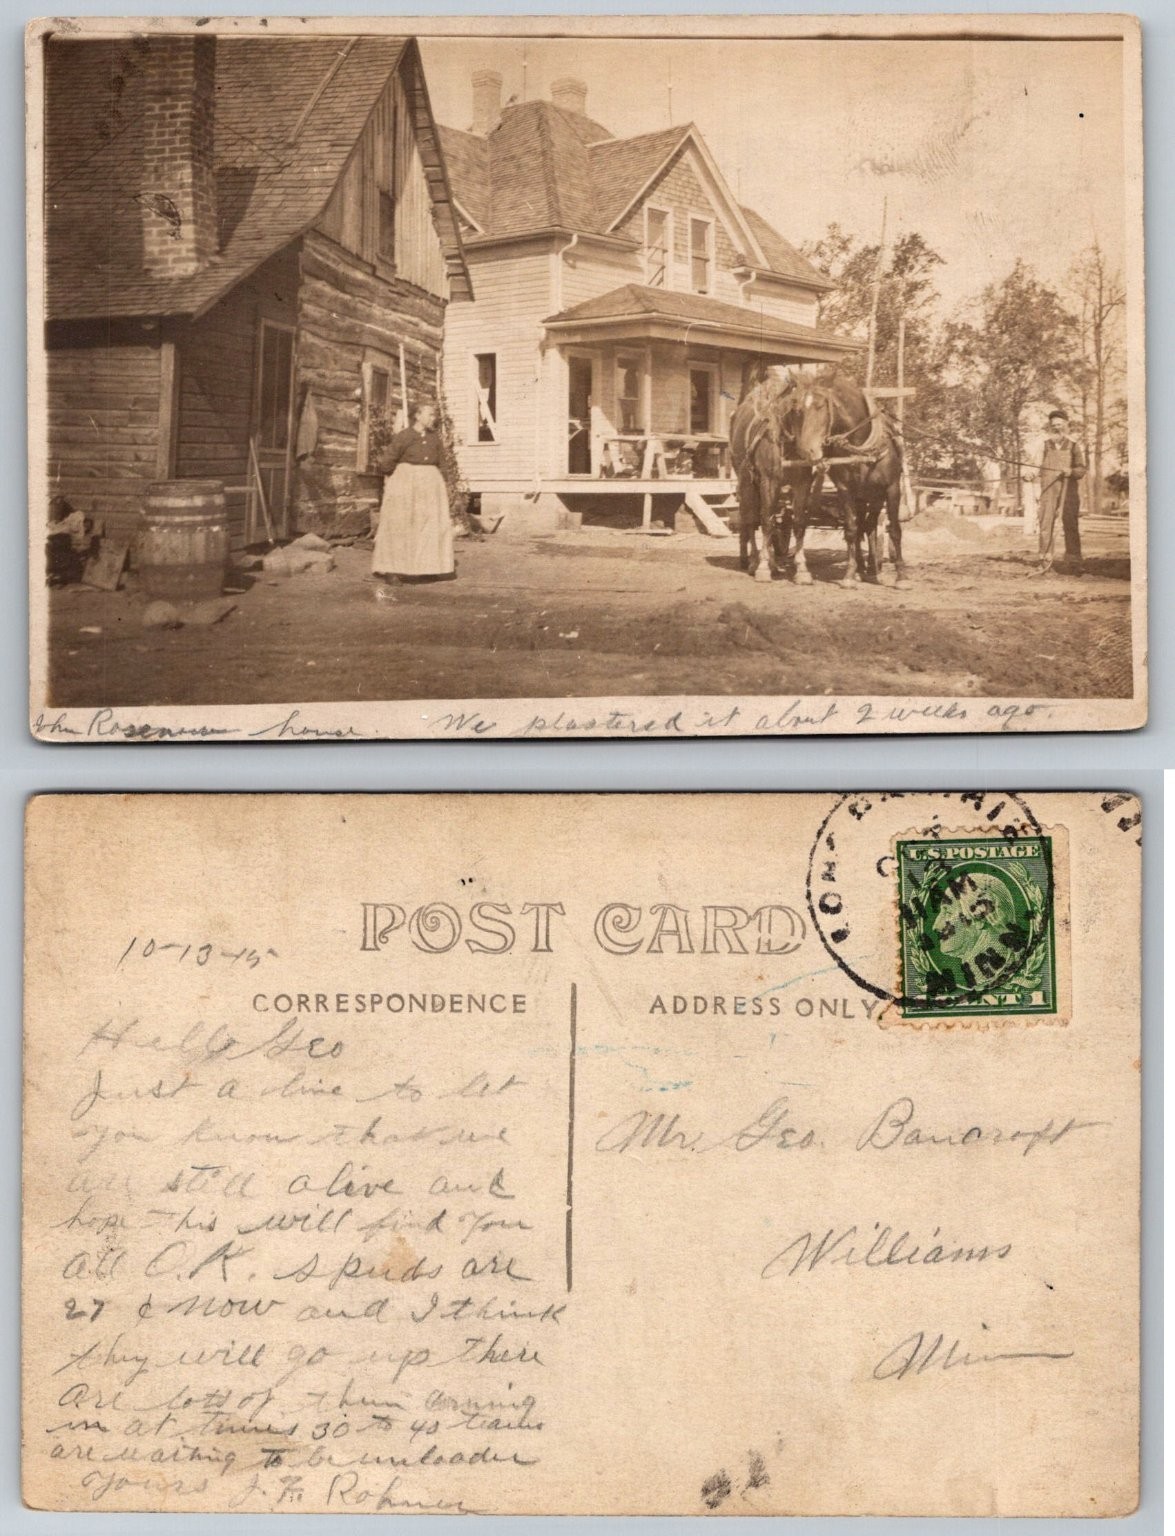 John Rosenow house. We plastered it about 2 weeks ago.
LONG PRAIRIE
OCT
13
11 AM
1915
MINN.
U.S. POSTAGE
CENT 1
POST CARD
10-13-15
CORRESPONDENCE
ADDRESS ONLY
Hello Geo
Just a line to let
you know that we
are still alive and
hope this will find you
all O.K. spuds are
27 ¢ now and I think
they will go up there
are lots of them coming
in at times 30 to 40 teams
are waiting to be unloaded
Yours J. F. Rohmer
Mr. Geo. Bancroft
Williams
Minn